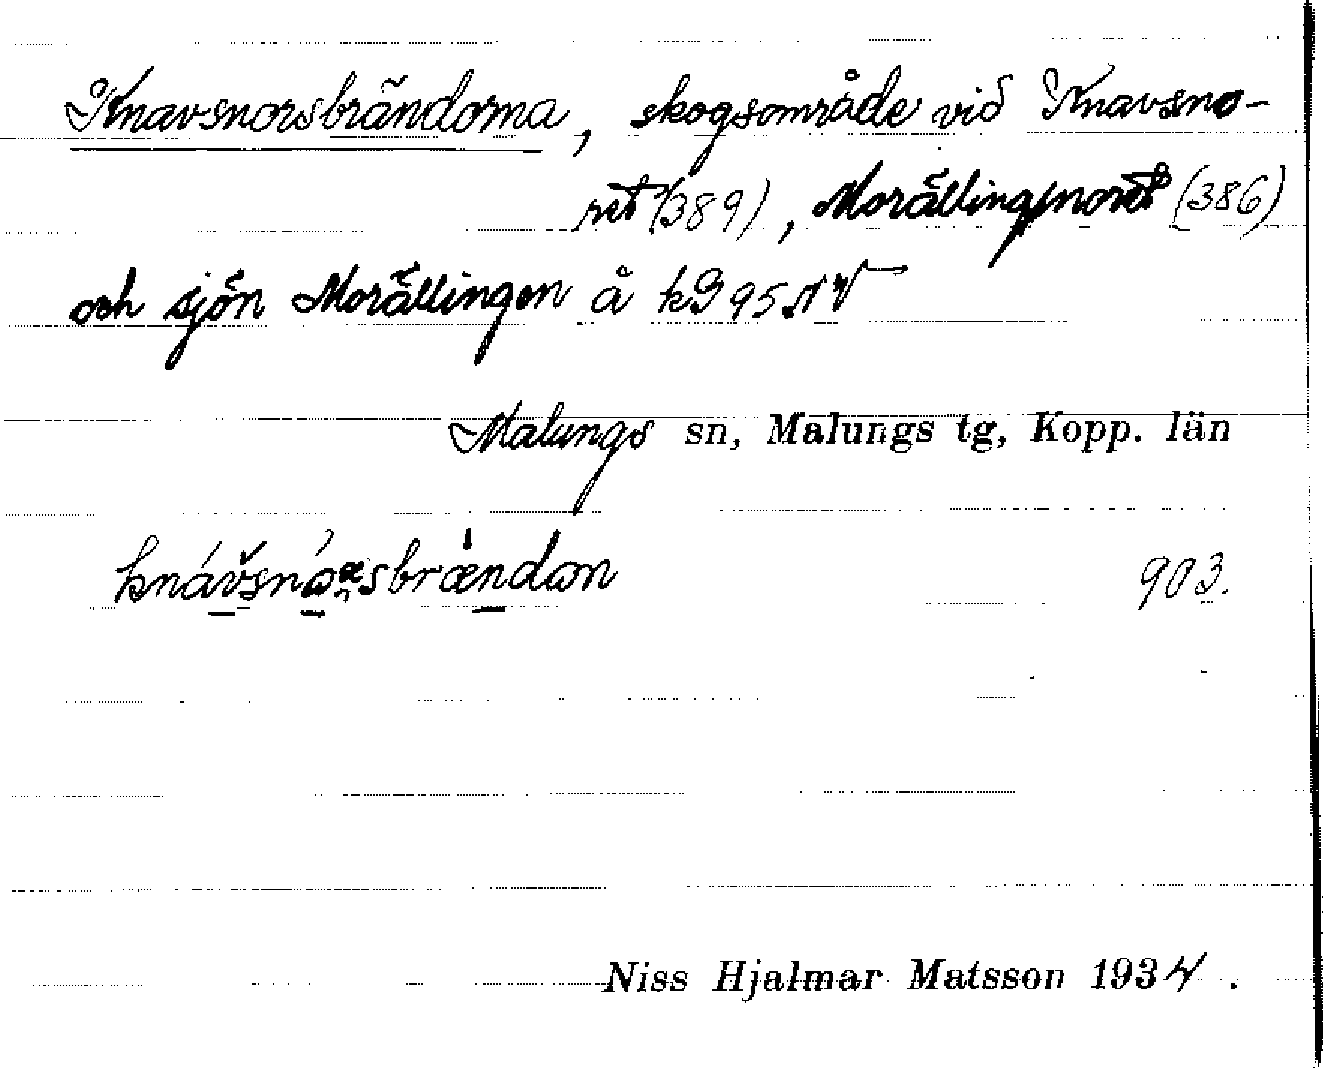 Knavsnorsbrändorna, skogsområde vid Knavsno-
ret (389), Morällingsnoret (386)
och sjön Morällingen å kB 95 NV
Malungs sn, Malungs tg, Kopp. län
903.
Niss Hjalmar Matsson 1934.